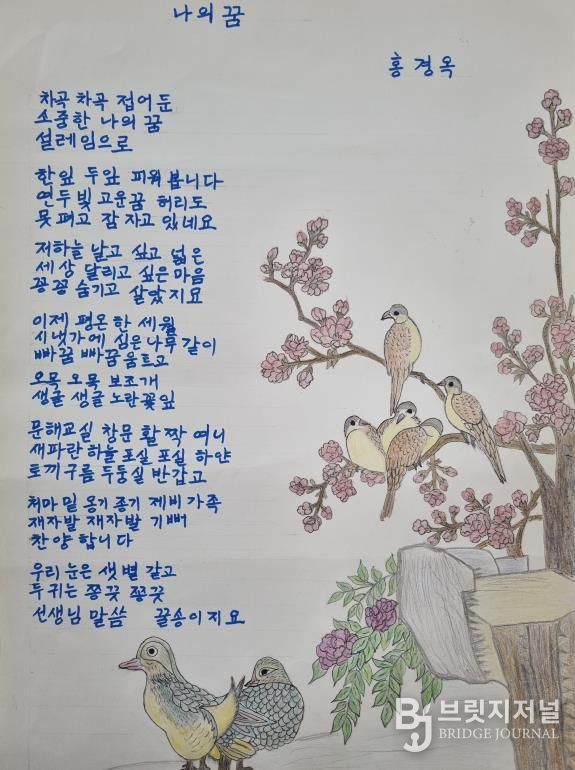 나의 꿈
홍경옥
차곡 차곡 접어 둔
소중한 나의 꿈
설레임으로
한잎 두잎 피워 봅니다
연두빛 고운꿈 허리도
못펴고 잠자고 있네요
저하늘 날고 싶고 넓은
세상 달리고 싶은 마음
꽁꽁 숨기고 살았지요
이제 평온한 세월
시냇가에 심은 나무 같이
빠꿈 빠꿈 움트고
오목 오목 보조개
생글 생글 노란꽃잎
문해교실 창문 활짝 여니
새파란 하늘 포실 포실 하얀
토끼구름 두둥실 반갑고
처마 밑 옹기 종기 제비 가족
재자발 재자발 기뻐
찬양 합니다
우리 눈은 샛별 같고
두 귀는 쫑긋 쫑긋
선생님 말씀 꿀송이지요
브릿지저널
BRIDGE JOURNAL